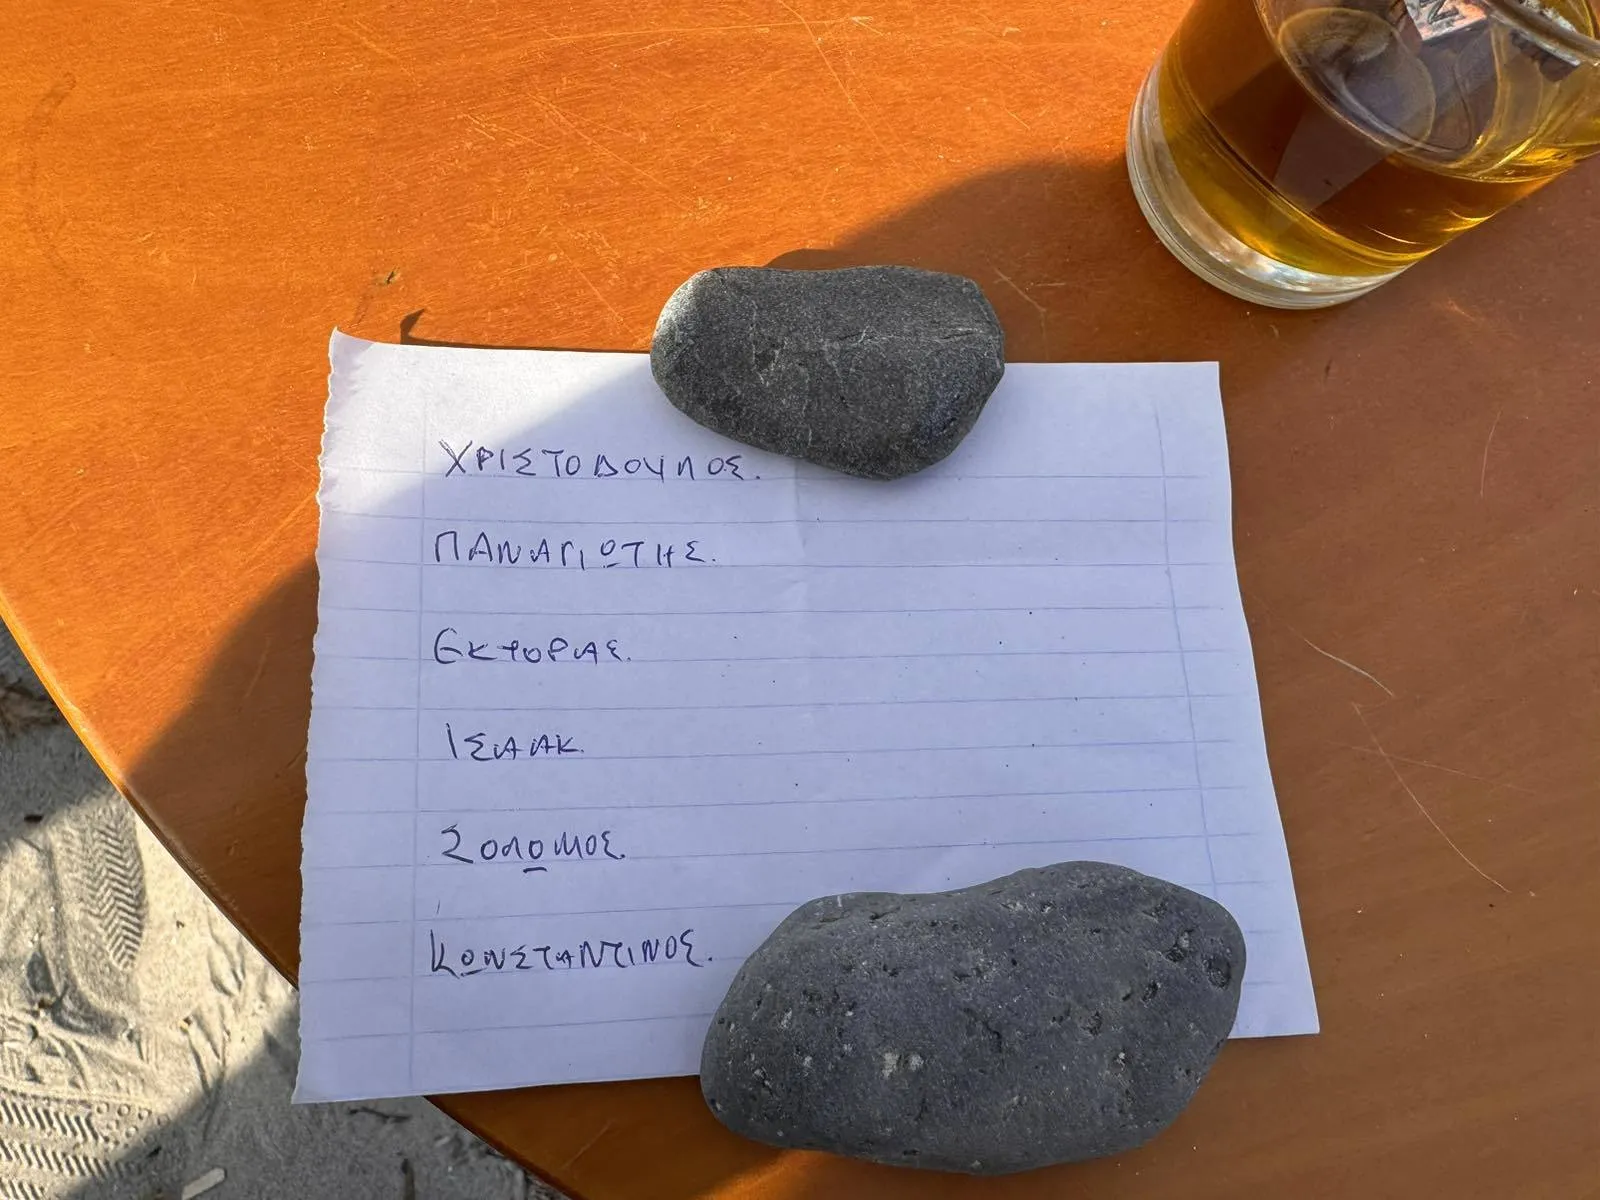 ΧΡΙΣΤΟΔΟΥΛΟΣ.
ΠΑΝΑΓΙΩΤΗΣ.
ΕΚΤΟΡΑΣ.
ΙΣΑΑΚ.
ΣΟΛΩΜΟΣ.
ΚΩΝΣΤΑΝΤΙΝΟΣ.